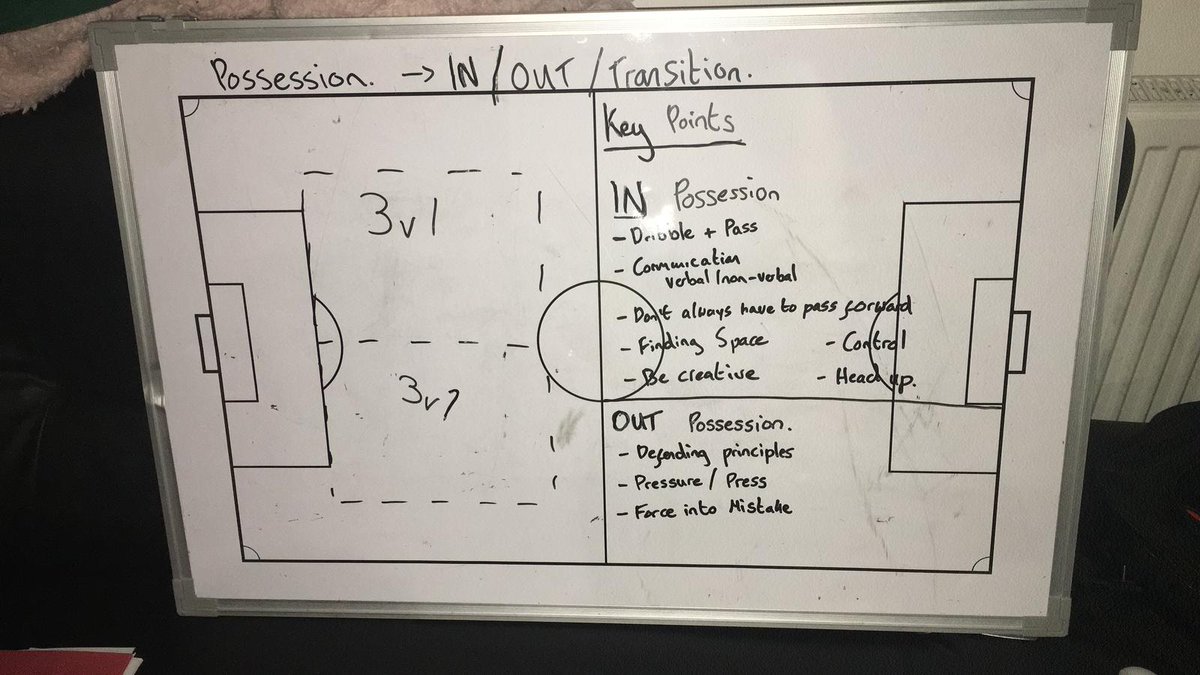 Possession. → IN / OUT / Transition.
Key Points
3v1
IN Possession
- Dribble + Pass
- Communication
verbal/non-verbal
- Don't always have to pass forward
- Finding Space
- Control
- Be creative
- Head up.
3v
OUT Possession.
- Defending principles
- Pressure / Press
- Force into Mistake